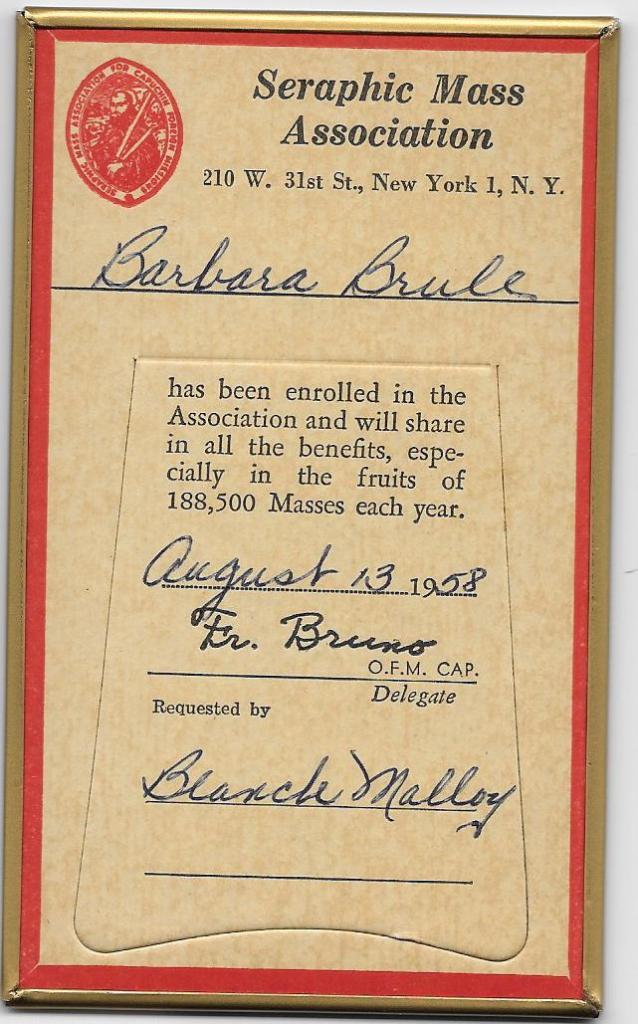 SERAPHIC MASS ASSOCIATION FOR CAPUCHIN FOREIGN MISSIONS
Seraphic Mass
Association
210 W. 31st St., New York 1, N. Y.
Barbara Brule
has been enrolled in the
Association and will share
in all the benefits, espe-
cially in the fruits of
188,500 Masses each year.
August 13 1958
Fr. Bruno
O.F.M. CAP.
Delegate
Requested by
Blanche Malloy